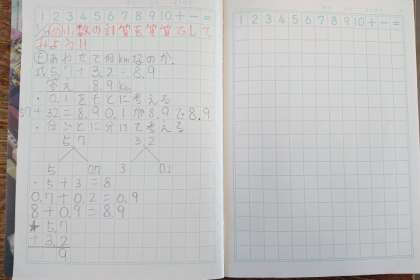 1 2 3 4 5 6 7 8 9 10 + - =
小数の計算を筆算でして
みよう!!
あわせて何kmなのか。
式 5.7 + 3.2 = 8.9
答え 8.9km
・0.1をもとに考える
57 + 32 = 89 0.1が89で8.9
・分けて考える
5.7 3.2
5 0.7 3 0.2
・5 + 3 = 8
0.7 + 0.2 = 0.9
8 + 0.9 = 8.9
★ 5.7
+ 3.2
9
1 2 3 4 5 6 7 8 9 10 + - =